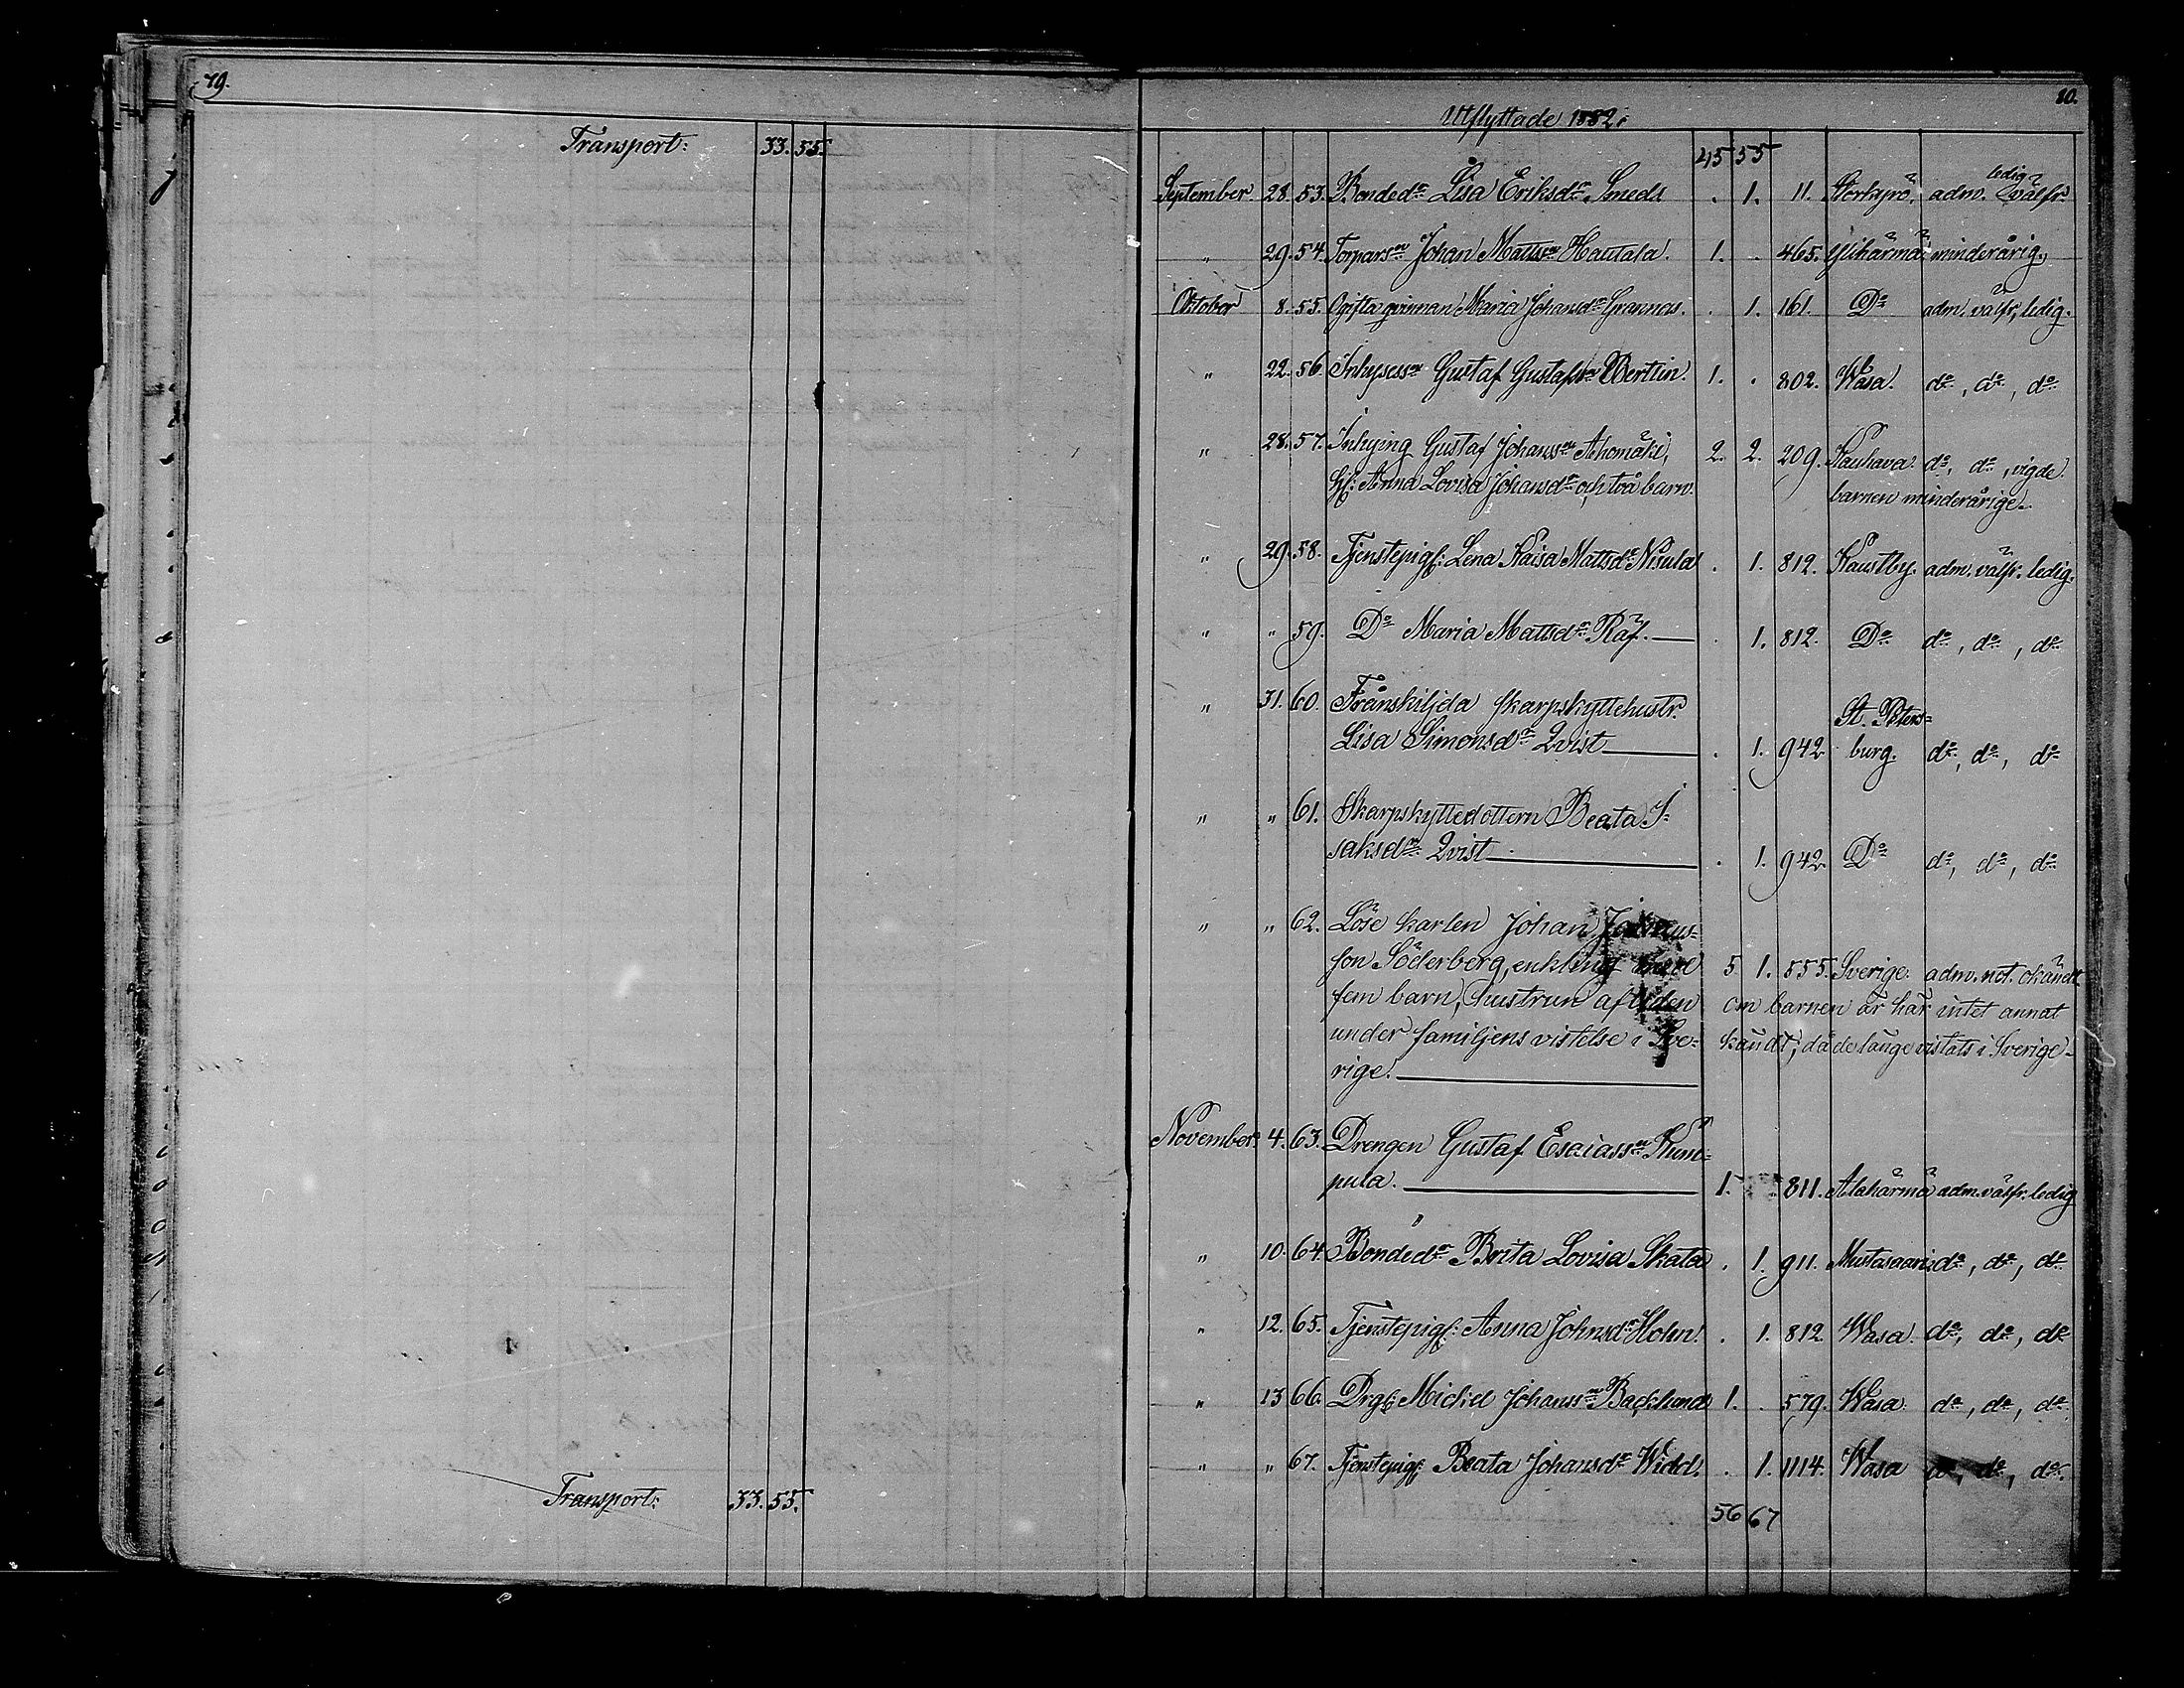 79.
Transport: 33. 55.
Transport: 33. 55.
80.
Utflyttade 1882.
45 55
September. 28. 53. Bondedr Lisa Eriksdr Smeds . 1. 11. Storkyrö. adm. välfr. ledig
" 29. 54. Torparsn Johan Mattsn Hautala. 1. . 465. Ylihärmä minderårig.
Oktober 8. 55. Ogifta qvinnan Maria Johansdr Grannas. . 1. 161. Do adm. välfr, ledig.
" 22. 56. Inhysessn Gustaf Gustafsn Wertiin. 1. . 802. Wasa. do, do, do
" 28. 57. Inhysing Gustaf Johanssn Ahomäki, 2. 2. 209. Kauhava. do, do, vigde
hf: Anna Lovisa Johansdr och två barn. barnen minderårige.
" 29. 58. Tjenstepigf: Lena Kaisa Mattsdr Nisula . 1. 812. Kaustby. adm. välfr. ledig.
" " 59. Do Maria Mattsdr Räf. . 1. 812. Do do, do, do
" 31. 60. Frånskiljda skarpskyttehustr. St. Peters=
Lisa Simonsdr Qvist . 1. 942 burg. do, do, do
" " 61. Skarpskyttedottern Beata I=
saksdr Qvist . 1. 942. Do do, do, do
" " 62. Löse karlen Johan Johans=
son Söderberg, enkling med 5 1. 555. Sverige. adm. not. okändt
fem barn, hustrun afliden om barnen är här intet annat
under familjens vistelse i Sve= kändt, då de länge vistats i Sverige.
rige.
November. 4. 63. Drengen Gustaf Esaiassn Kum=
pula. 1. . 811. Alahärmä adm. välfr. ledig
" 10. 64. Bondedr Brita Lovisa Skata . 1. 911. Mustasaari do, do, do
" 12. 65. Tjenstepigf: Anna Johnsdr Holm. . 1. 812 Wasa. do, do, do
" 13 66. Drgf: Mickel Johanssn Backlund 1. . 579. Wasa. do, do, do
" " 67. Tjenstepigf: Beata Johansdr Widd. . 1. 1114. Wasa do, do, do.
56 67